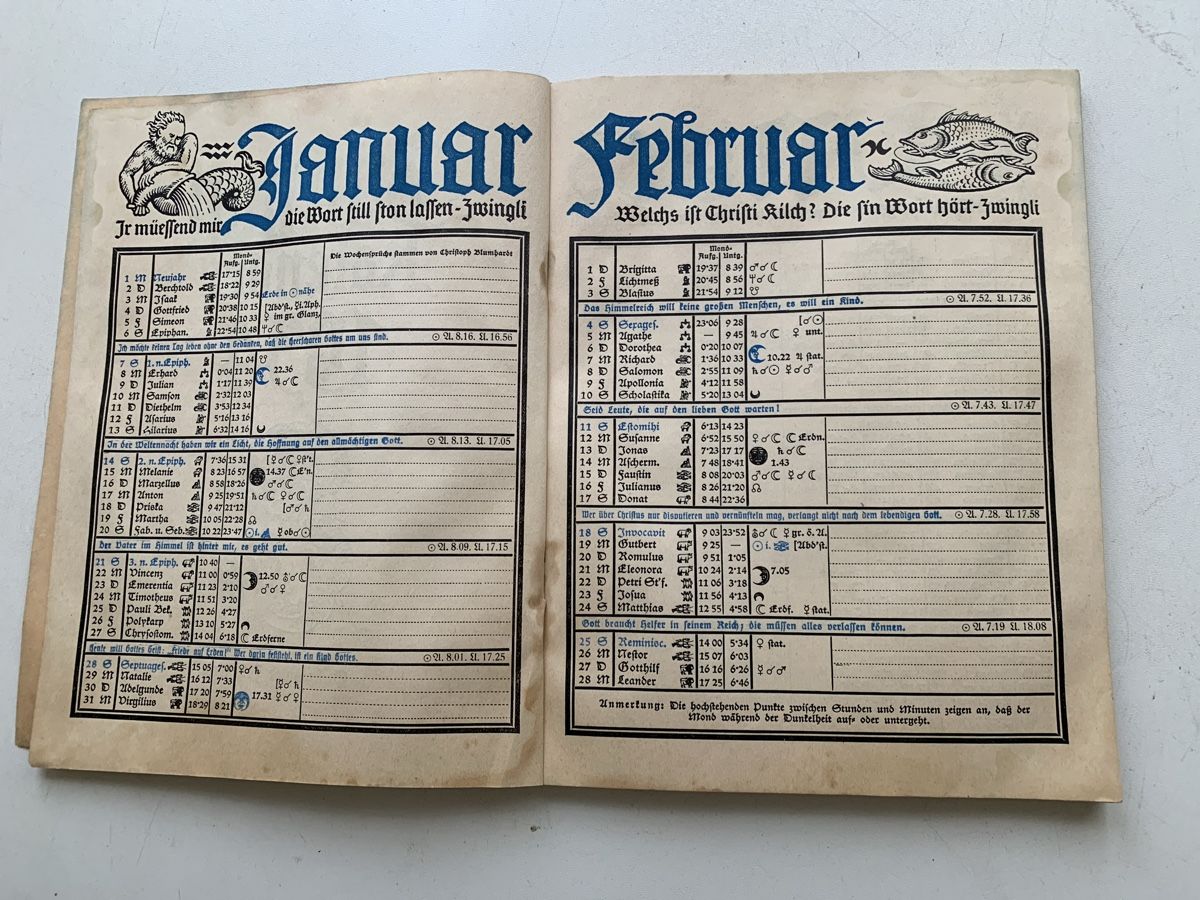 Januar
Jr müessend mir die Wort still ston lassen-Zwingli
Mond-
Aufg. Untg.
Die Wochensprüche stammen von Christoph Blumhardt
1 M Neujahr 17·15 8 59
2 D Berchtold 18·22 9 29
3 M Isaak 19·30 9 54 Erde in ☉ nähe
4 D Gottfried 20·38 10 15
5 F Simeon 21·46 10 33 ♀ im gr. Glanz,
6 S Epiphan. 22·54 10 48 ♆☌☾
Ich möchte keinen Tag leben ohne den Gedanken, daß die Heerscharen Gottes am uns sind. ☉ A. 8.16. U. 16.56
7 S 1. n. Epiph. — 11 04 ☋
8 M Erhard 0·04 11 20 22.36
9 D Julian 1·17 11 39 ♃☌☾
10 M Samson 2·32 12 03
11 D Diethelm 3·53 12 34
12 F Asarius 5·16 13 16
13 S Hilarius 6·32 14 16
In der Weltennacht haben wir ein Licht, die Hoffnung auf den allmächtigen Gott. ☉ A. 8.13. U. 17.05
14 S 2. n. Epiph. 7·36 15 31
15 M Melanie 8 23 16·57 14.37
16 D Marzellus 8 58 18·26 ♂☌☾
17 M Anton 9 25 19·51 ♄☌☾ ♀☌☾
18 D Priska 9 47 21·12 [♂☌♄
19 F Martha 10 05 22·28 ☊
20 S Fab. u. Seb. 10 22 23·47 ☉ i. ☿ ob☌☉
Der Vater im Himmel ist hinter mir, es geht gut. ☉ A. 8.09. U. 17.15
21 S 3. n. Epiph. 10 40 —
22 M Vincenz 11 00 0·59 12.50 ♅☌☾
23 D Emerentia 11 23 2·10 ♂☌♀
24 M Timotheus 11 51 3·20
25 D Pauli Bek. 12 26 4·27
26 F Polykarp 13 10 5·27
27 S Chrysostom. 14 04 6·18 ☾ Erdferne
Heute will Gottes Geist: „Friede auf Erden!" Wer darin feststeht, ist ein Kind Gottes. ☉ A. 8.01. U. 17.25
28 S Septuages. 15 05 7·00 ♀☌♄
29 M Natalie 16 12 7·33 [☿☌♄
30 D Adelgunde 17 20 7·59
31 M Virgilius 18·29 8 21 17.31 ☿☌♀
Februar
Welchs ist Christi Kilch? Die sin Wort hört-Zwingli
Mond-
Aufg. Untg.
1 D Brigitta 19·37 8 39 ♂☌☾
2 F Lichtmeß 20·45 8 56 ♆☌☾
3 S Blasius 21·54 9 12 ☋
Das Himmelreich will keine großen Menschen, es will ein Kind. ☉ A. 7.52. U. 17.36
4 S Sexages. 23·06 9 28 [☌☉
5 M Agathe — 9 45 ♃☌☾ ♀ unt.
6 D Dorothea 0·20 10 07
7 M Richard 1·36 10 33 10.22 ♃ stat.
8 D Salomon 2·55 11 09 ♄☌☉ ☿☌♂
9 F Apollonia 4·12 11 58
10 S Scholastika 5·20 13 04
Seid Leute, die auf den lieben Gott warten! ☉ A. 7.43. U. 17.47
11 S Estomihi 6·13 14 23
12 M Susanne 6·52 15 50 ♀☌☾ ☾ Erdn.
13 D Jonas 7·23 17·17 ♄☌☾
14 M Ascherm. 7 48 18·41 1.43
15 D Faustin 8 08 20·03 ♂☌☾ ☿☌☾
16 F Julianus 8 26 21·20 ☊
17 S Donat 8 44 22·36
Wer über Christus nur disputieren und vernünfteln mag, verlangt nicht nach dem lebendigen Gott. ☉ A. 7.28. U. 17.58
18 S Invocavit 9 03 23·52 ♅☌☾ ☿ gr. ö. A.
19 M Gutbert 9 25 — ☉ i. [Abd'st.
20 D Romulus 9 51 1·05
21 M Eleonora 10 24 2·14 7.05
22 D Petri St'f. 11 06 3·18
23 F Josua 11 56 4·13
24 S Matthias 12 55 4·58 ☾ Erdf. ☿ stat.
Gott braucht Helfer in seinem Reich; die müssen alles verlassen können. ☉ A. 7.19 U. 18.08
25 S Reminisc. 14 00 5·34 ♀ stat.
26 M Nestor 15 07 6·03
27 D Gotthilf 16 16 6·26 ☿☌♂
28 M Leander 17 25 6·46
Anmerkung: Die hochstehenden Punkte zwischen Stunden und Minuten zeigen an, daß der
Mond während der Dunkelheit auf- oder untergeht.